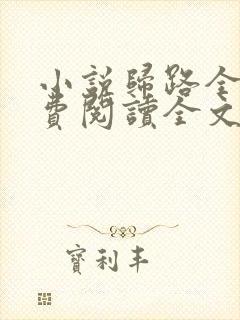 小說歸路全
費閱讀全文
寶利丰